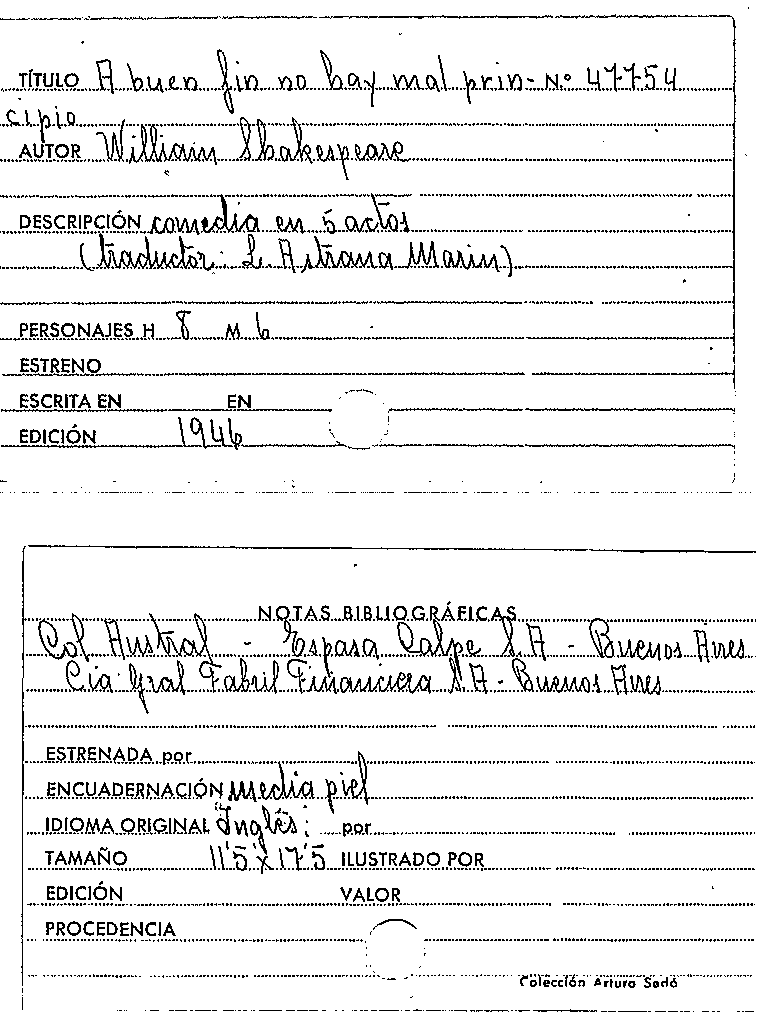 TÍTULO A buen fin no hay mal prin- Nº 47754
cipio
AUTOR William Shakespeare
DESCRIPCIÓN comedia en 5 actos
(traductor: L. Astrana Marin)
PERSONAJES H 8 M 6
ESTRENO
ESCRITA EN EN
EDICIÓN 1946
NOTAS BIBLIOGRÁFICAS
Col Austral - Espasa Calpe S.A - Buenos Aires
Cia Gral Fabril Financiera S.A - Buenos Aires
ESTRENADA por
ENCUADERNACIÓN media piel
IDIOMA ORIGINAL Inglés: por
TAMAÑO 11'5 x 17'5 ILUSTRADO POR
EDICIÓN VALOR
PROCEDENCIA
Colección Arturo Sedó